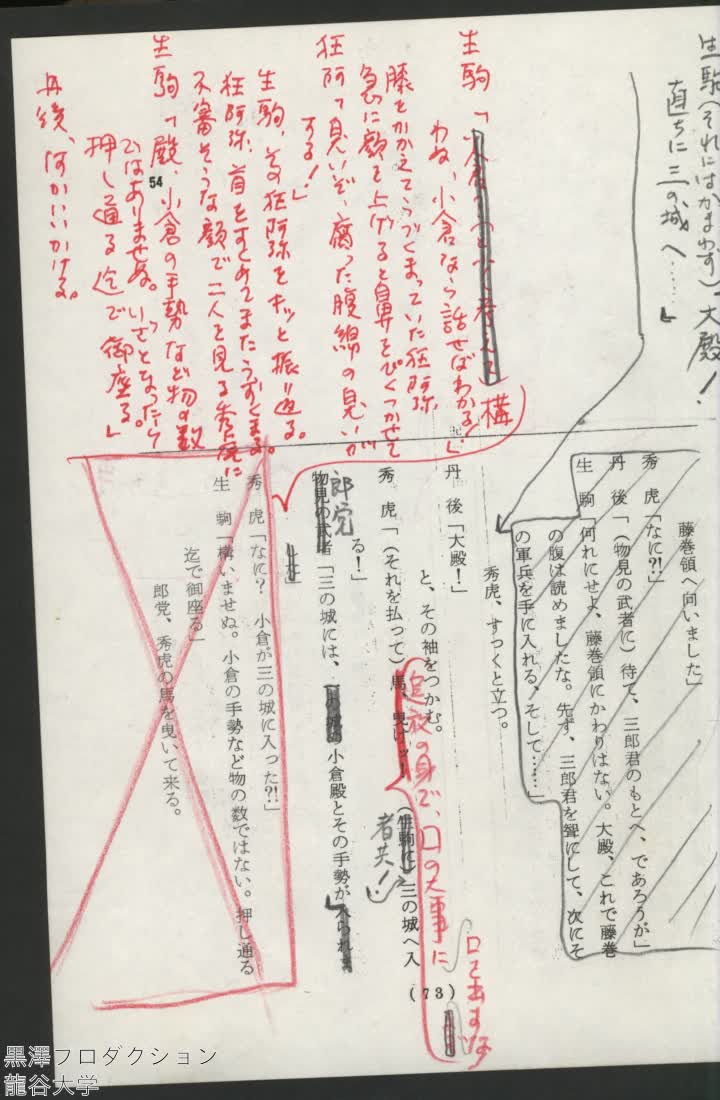 生駒(それにはかまわず)「大殿!
直ちに三の城へ……」
生駒「
構
わぬ、小倉なら話せばわかる!」
膝をかかえてうづくまっていた狂阿弥、
急に顔を上げると鼻をぴくつかせて
狂阿「臭いぞ、腐った腹綿の臭いが
する!」
生駒、その狂阿弥をキッと振り返る。
狂阿弥、首をすくめてまたうずくまる。
不審そうな顔で二人を見る秀虎に
生駒「殿、小倉の手勢など物の数
ではありませぬ。いざとなったら
押し通る迄で御座る」
丹後、何かいいかける。
54
藤巻領へ向いました」
秀虎「なに?!」
丹後「(物見の武者に)待て、三郎君のもとへ、であろうが」
生駒「何れにせよ、藤巻領にかわりはない。大殿、これで藤巻
の腹は読めましたな。先ず、三郎君を聟にして、次にそ
の軍兵を手に入れる、そして……」
秀虎、すっくと立つ。
丹後「大殿!」
と、その袖をつかむ。
秀虎「(それを払って)馬、曳けッ! (生駒に)三の城へ入
る!」
者共!
追放の身で、口の大事に
口を出すな
郎党
物見の武者「三の城には、小倉殿とその手勢が入られま
した」
秀虎「なに? 小倉が三の城に入った?!」
生駒「構いませぬ。小倉の手勢など物の数ではない。押し通る
迄で御座る」
郎党、秀虎の馬を曳いて来る。
(73)
黒澤プロダクション
龍谷大学